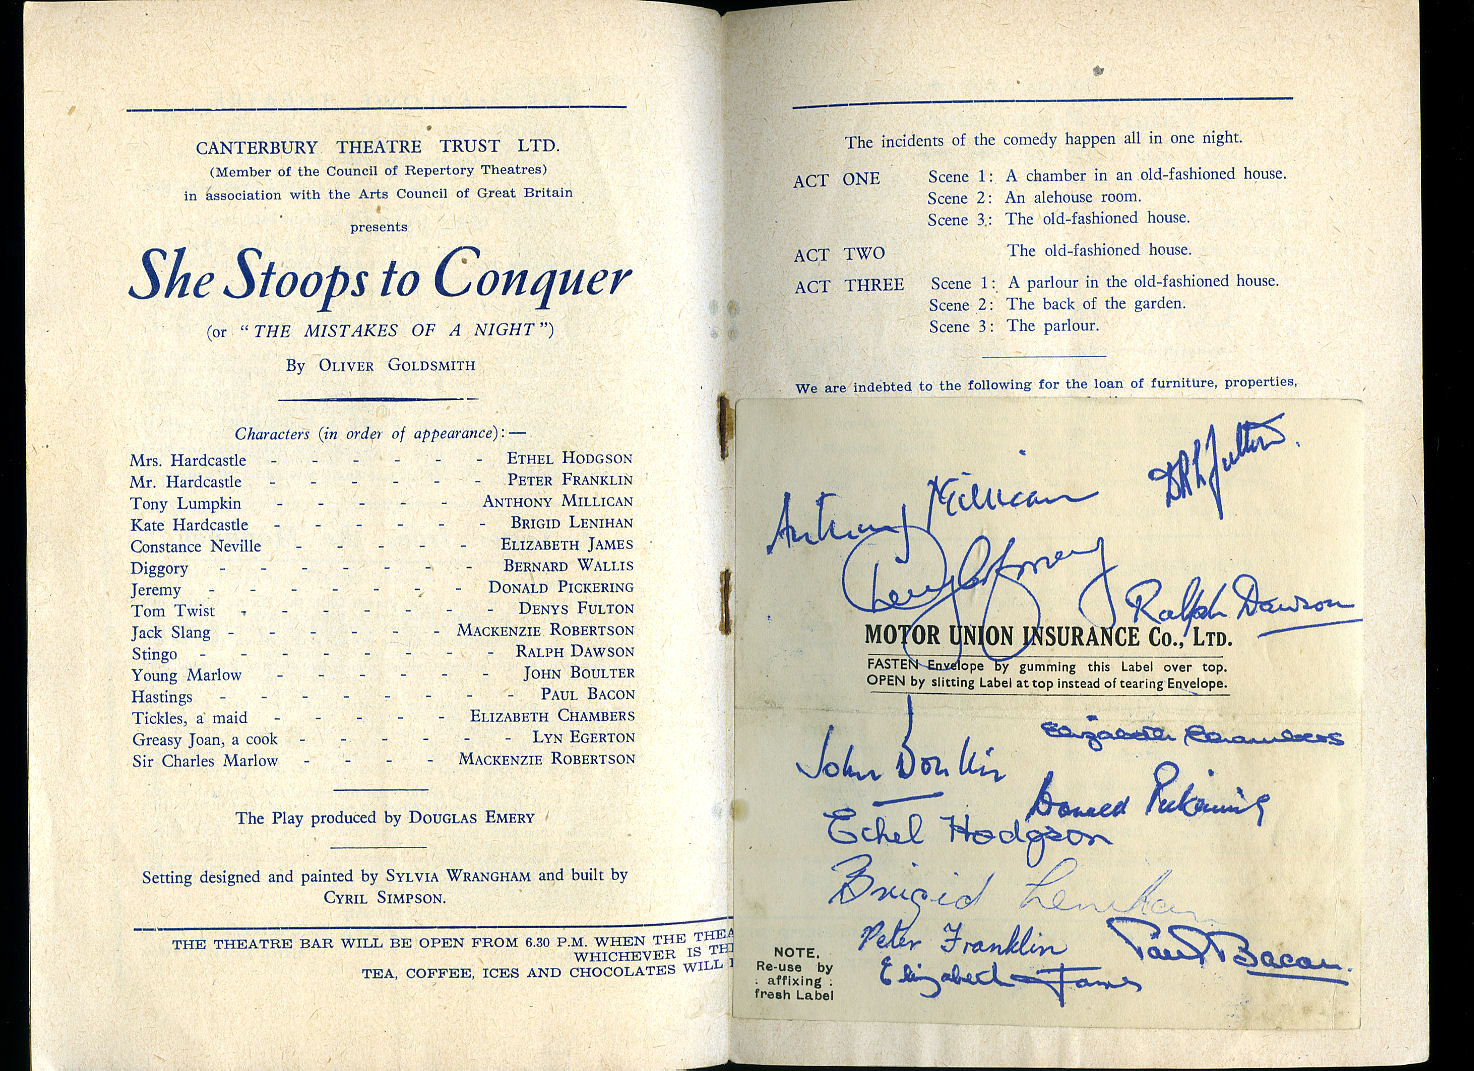 CANTERBURY THEATRE TRUST LTD.
(Member of the Council of Repertory Theatres)
in association with the Arts Council of Great Britain
presents
She Stoops to Conquer
(or "THE MISTAKES OF A NIGHT")
By OLIVER GOLDSMITH
Characters (in order of appearance):—
Mrs. Hardcastle - - - - - - ETHEL HODGSON
Mr. Hardcastle - - - - - - PETER FRANKLIN
Tony Lumpkin - - - - - ANTHONY MILLICAN
Kate Hardcastle - - - - - - BRIGID LENIHAN
Constance Neville - - - - - ELIZABETH JAMES
Diggory - - - - - - - BERNARD WALLIS
Jeremy - - - - - - - DONALD PICKERING
Tom Twist - - - - - - - DENYS FULTON
Jack Slang - - - - - - MACKENZIE ROBERTSON
Stingo - - - - - - - - RALPH DAWSON
Young Marlow - - - - - - JOHN BOULTER
Hastings - - - - - - - - PAUL BACON
Tickles, a maid - - - - - ELIZABETH CHAMBERS
Greasy Joan, a cook - - - - - - LYN EGERTON
Sir Charles Marlow - - - - MACKENZIE ROBERTSON
The Play produced by DOUGLAS EMERY
Setting designed and painted by SYLVIA WRANGHAM and built by
CYRIL SIMPSON.
THE THEATRE BAR WILL BE OPEN FROM 6.30 P.M. WHEN THE THEA
WHICHEVER IS THE
TEA, COFFEE, ICES AND CHOCOLATES WILL
The incidents of the comedy happen all in one night.
ACT ONE Scene 1: A chamber in an old-fashioned house.
Scene 2: An alehouse room.
Scene 3: The old-fashioned house.
ACT TWO The old-fashioned house.
ACT THREE Scene 1: A parlour in the old-fashioned house.
Scene 2: The back of the garden.
Scene 3: The parlour.
We are indebted to the following for the loan of furniture, properties,
Fulton.
Anthony Millican
Ralph Dawson
MOTOR UNION INSURANCE Co., LTD.
FASTEN Envelope by gumming this Label over top.
OPEN by slitting Label at top instead of tearing Envelope.
Elizabeth Chambers
John Donkin
Donald Pickering
Ethel Hodgson
Brigid Lenihan
Peter Franklin
Paul Bacon.
Elizabeth James
NOTE.
Re-use by
affixing
fresh Label